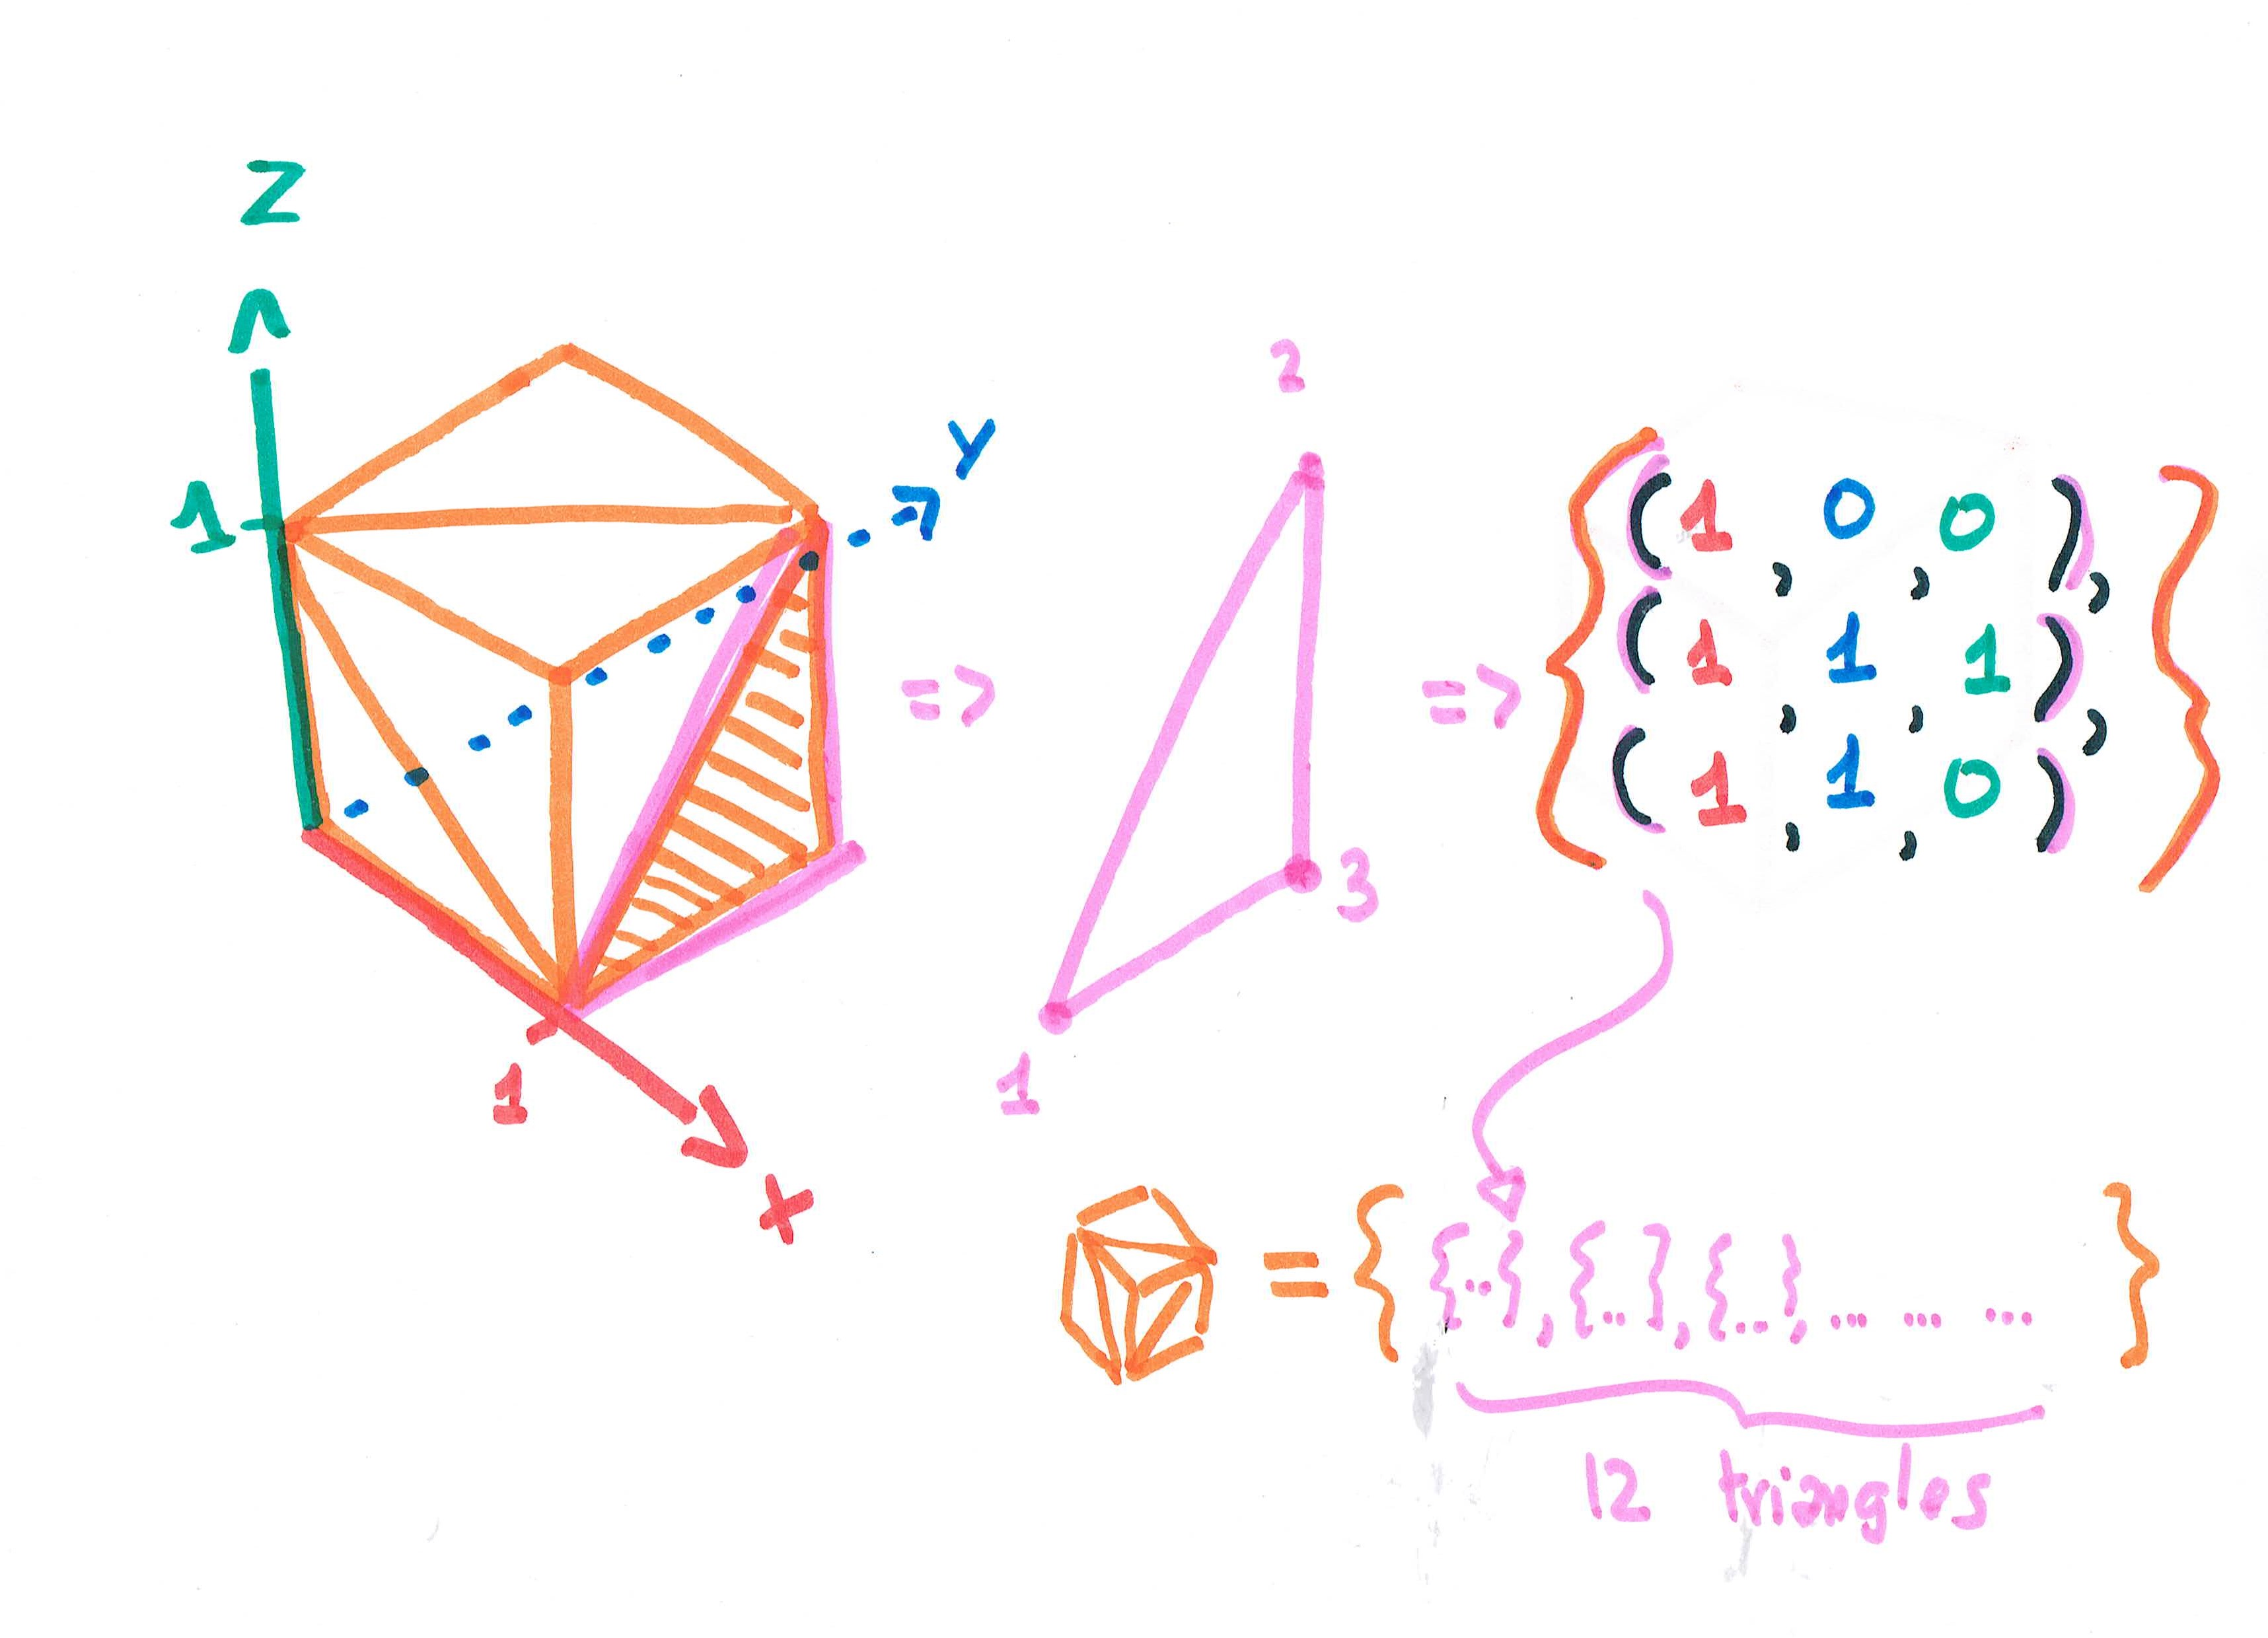 Z
1
Y
1
X
=>
2
3
1
=>
{(1, 0, 0),
(1, 1, 1),
(1, 1, 0)}
= {{..}, {..}, {..}, ... ... ...}
12 triangles